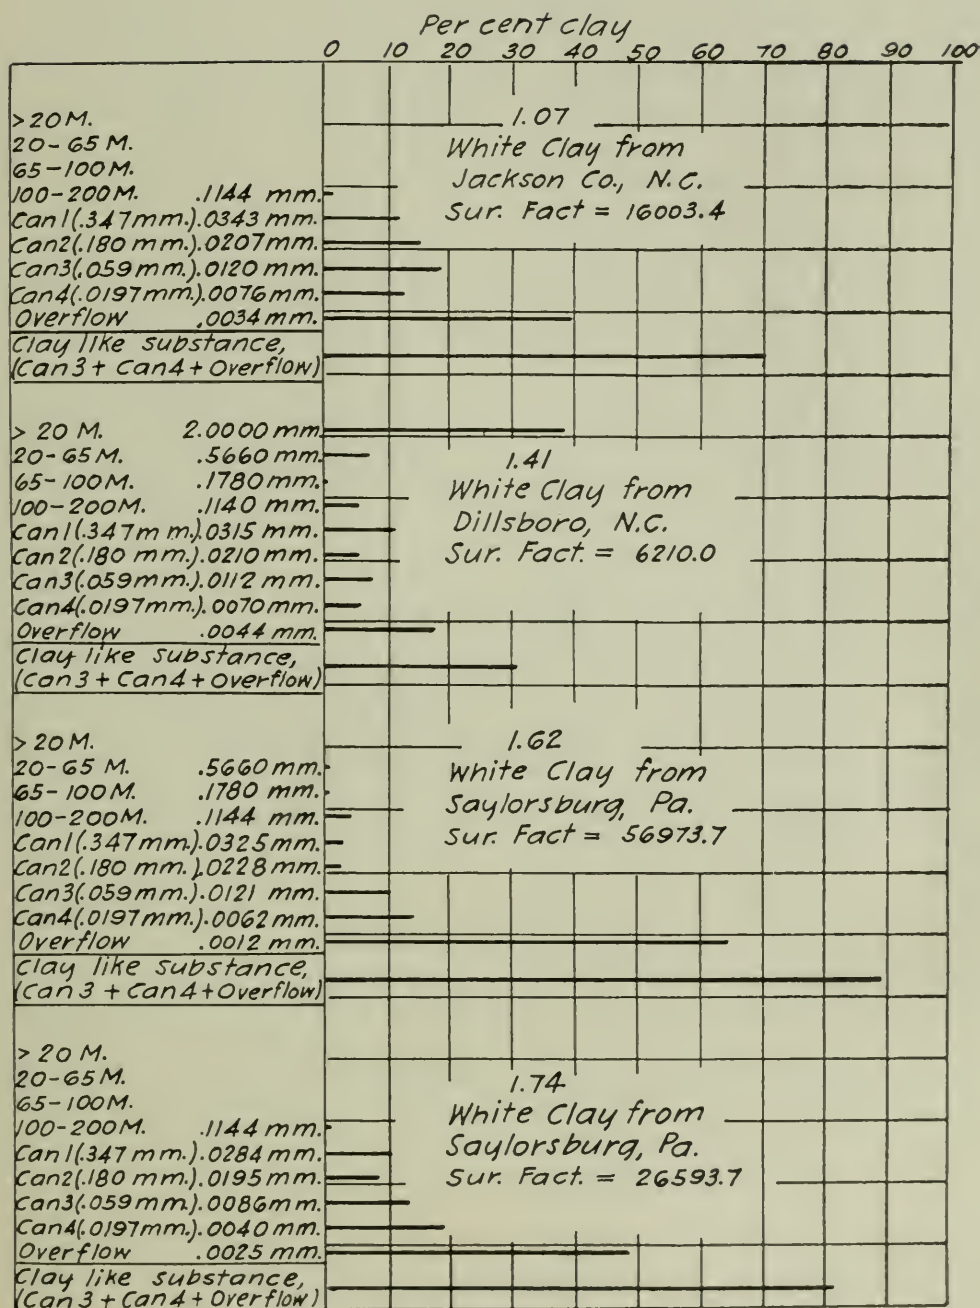 Per cent clay
0 10 20 30 40 50 60 70 80 90 100
> 20 M.
20-65 M.
65-100 M.
100-200 M. .1144 mm.
Can 1 (.347 mm.) .0343 mm.
Can 2 (.180 mm.) .0207 mm.
Can 3 (.059 mm.) .0120 mm.
Can 4 (.0197 mm.) .0076 mm.
Overflow .0034 mm.
Clay like substance,
(Can 3 + Can 4 + Overflow)
1.07
White Clay from
Jackson Co., N.C.
Sur. Fact = 16003.4
> 20 M. 2.0000 mm.
20-65 M. .5660 mm.
65-100 M. .1780 mm.
100-200 M. .1140 mm.
Can 1 (.347 m m.) .0315 mm.
Can 2 (.180 mm.) .0210 mm.
Can 3 (.059 mm.) .0112 mm.
Can 4 (.0197 mm.) .0070 mm.
Overflow .0044 mm.
Clay like substance,
(Can 3 + Can 4 + Overflow)
1.41
White Clay from
Dillsboro, N.C.
Sur. Fact. = 6210.0
> 20 M.
20-65 M. .5660 mm.
65-100 M. .1780 mm.
100-200 M. .1144 mm.
Can 1 (.347 mm.) .0325 mm.
Can 2 (.180 mm.) .0228 mm.
Can 3 (.059 mm.) .0121 mm.
Can 4 (.0197 mm.) .0062 mm.
Overflow .0012 mm.
Clay like substance,
(Can 3 + Can 4 + Overflow)
1.62
White Clay from
Saylorsburg, Pa.
Sur. Fact = 56973.7
> 20 M.
20-65 M.
65-100 M.
100-200 M. .1144 mm.
Can 1 (.347 mm.) .0284 mm.
Can 2 (.180 mm.) .0195 mm.
Can 3 (.059 mm.) .0086 mm.
Can 4 (.0197 mm.) .0040 mm.
Overflow .0025 mm.
Clay like substance,
(Can 3 + Can 4 + Overflow)
1.74
White Clay from
Saylorsburg, Pa.
Sur. Fact. = 26593.7